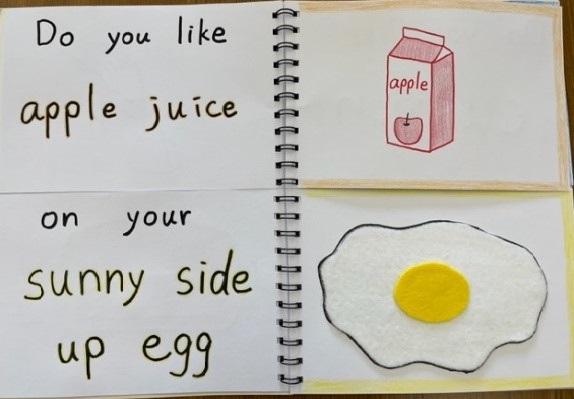 Do you like
apple juice
apple
on your
sunny side
up egg